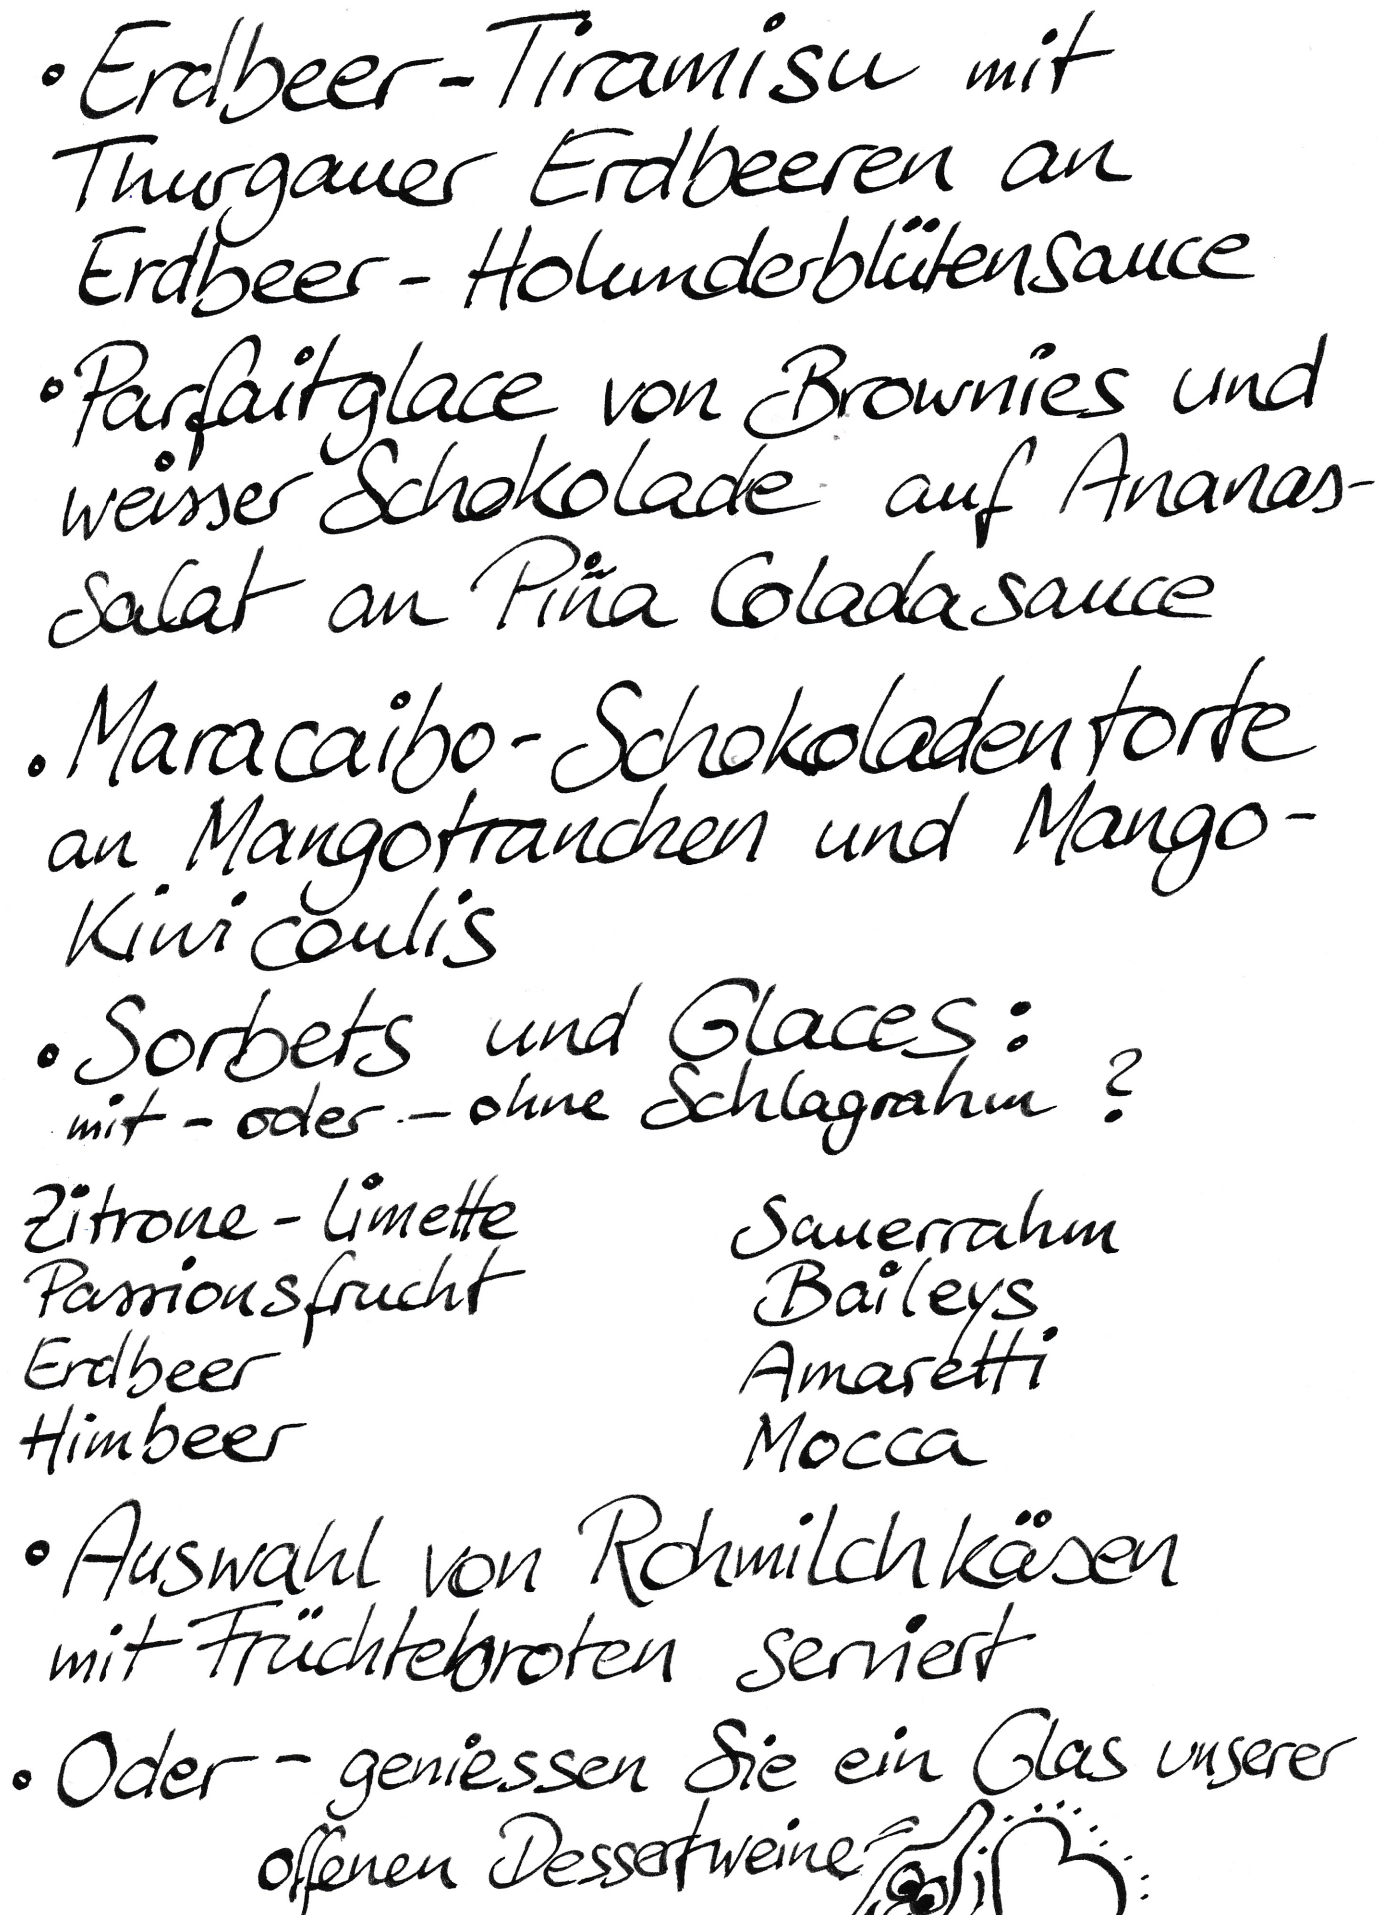 • Erdbeer-Tiramisu mit
Thurgauer Erdbeeren an
Erdbeer-Holunderblütensauce
• Parfaitglace von Brownies und
weisser Schokolade auf Ananas-
Salat an Piña Coladasauce
• Maracaibo-Schokoladentorte
an Mangotranchen und Mango-
Kiwicoulis
• Sorbets und Glaces:
mit - oder - ohne Schlagrahm ?
Zitrone-Limette Sauerrahm
Passionsfrucht Baileys
Erdbeer Amaretti
Himbeer Mocca
• Auswahl von Rohmilchkäsen
mit Früchtebroten serviert
• Oder - geniessen Sie ein Glas unserer
offenen Dessertweine